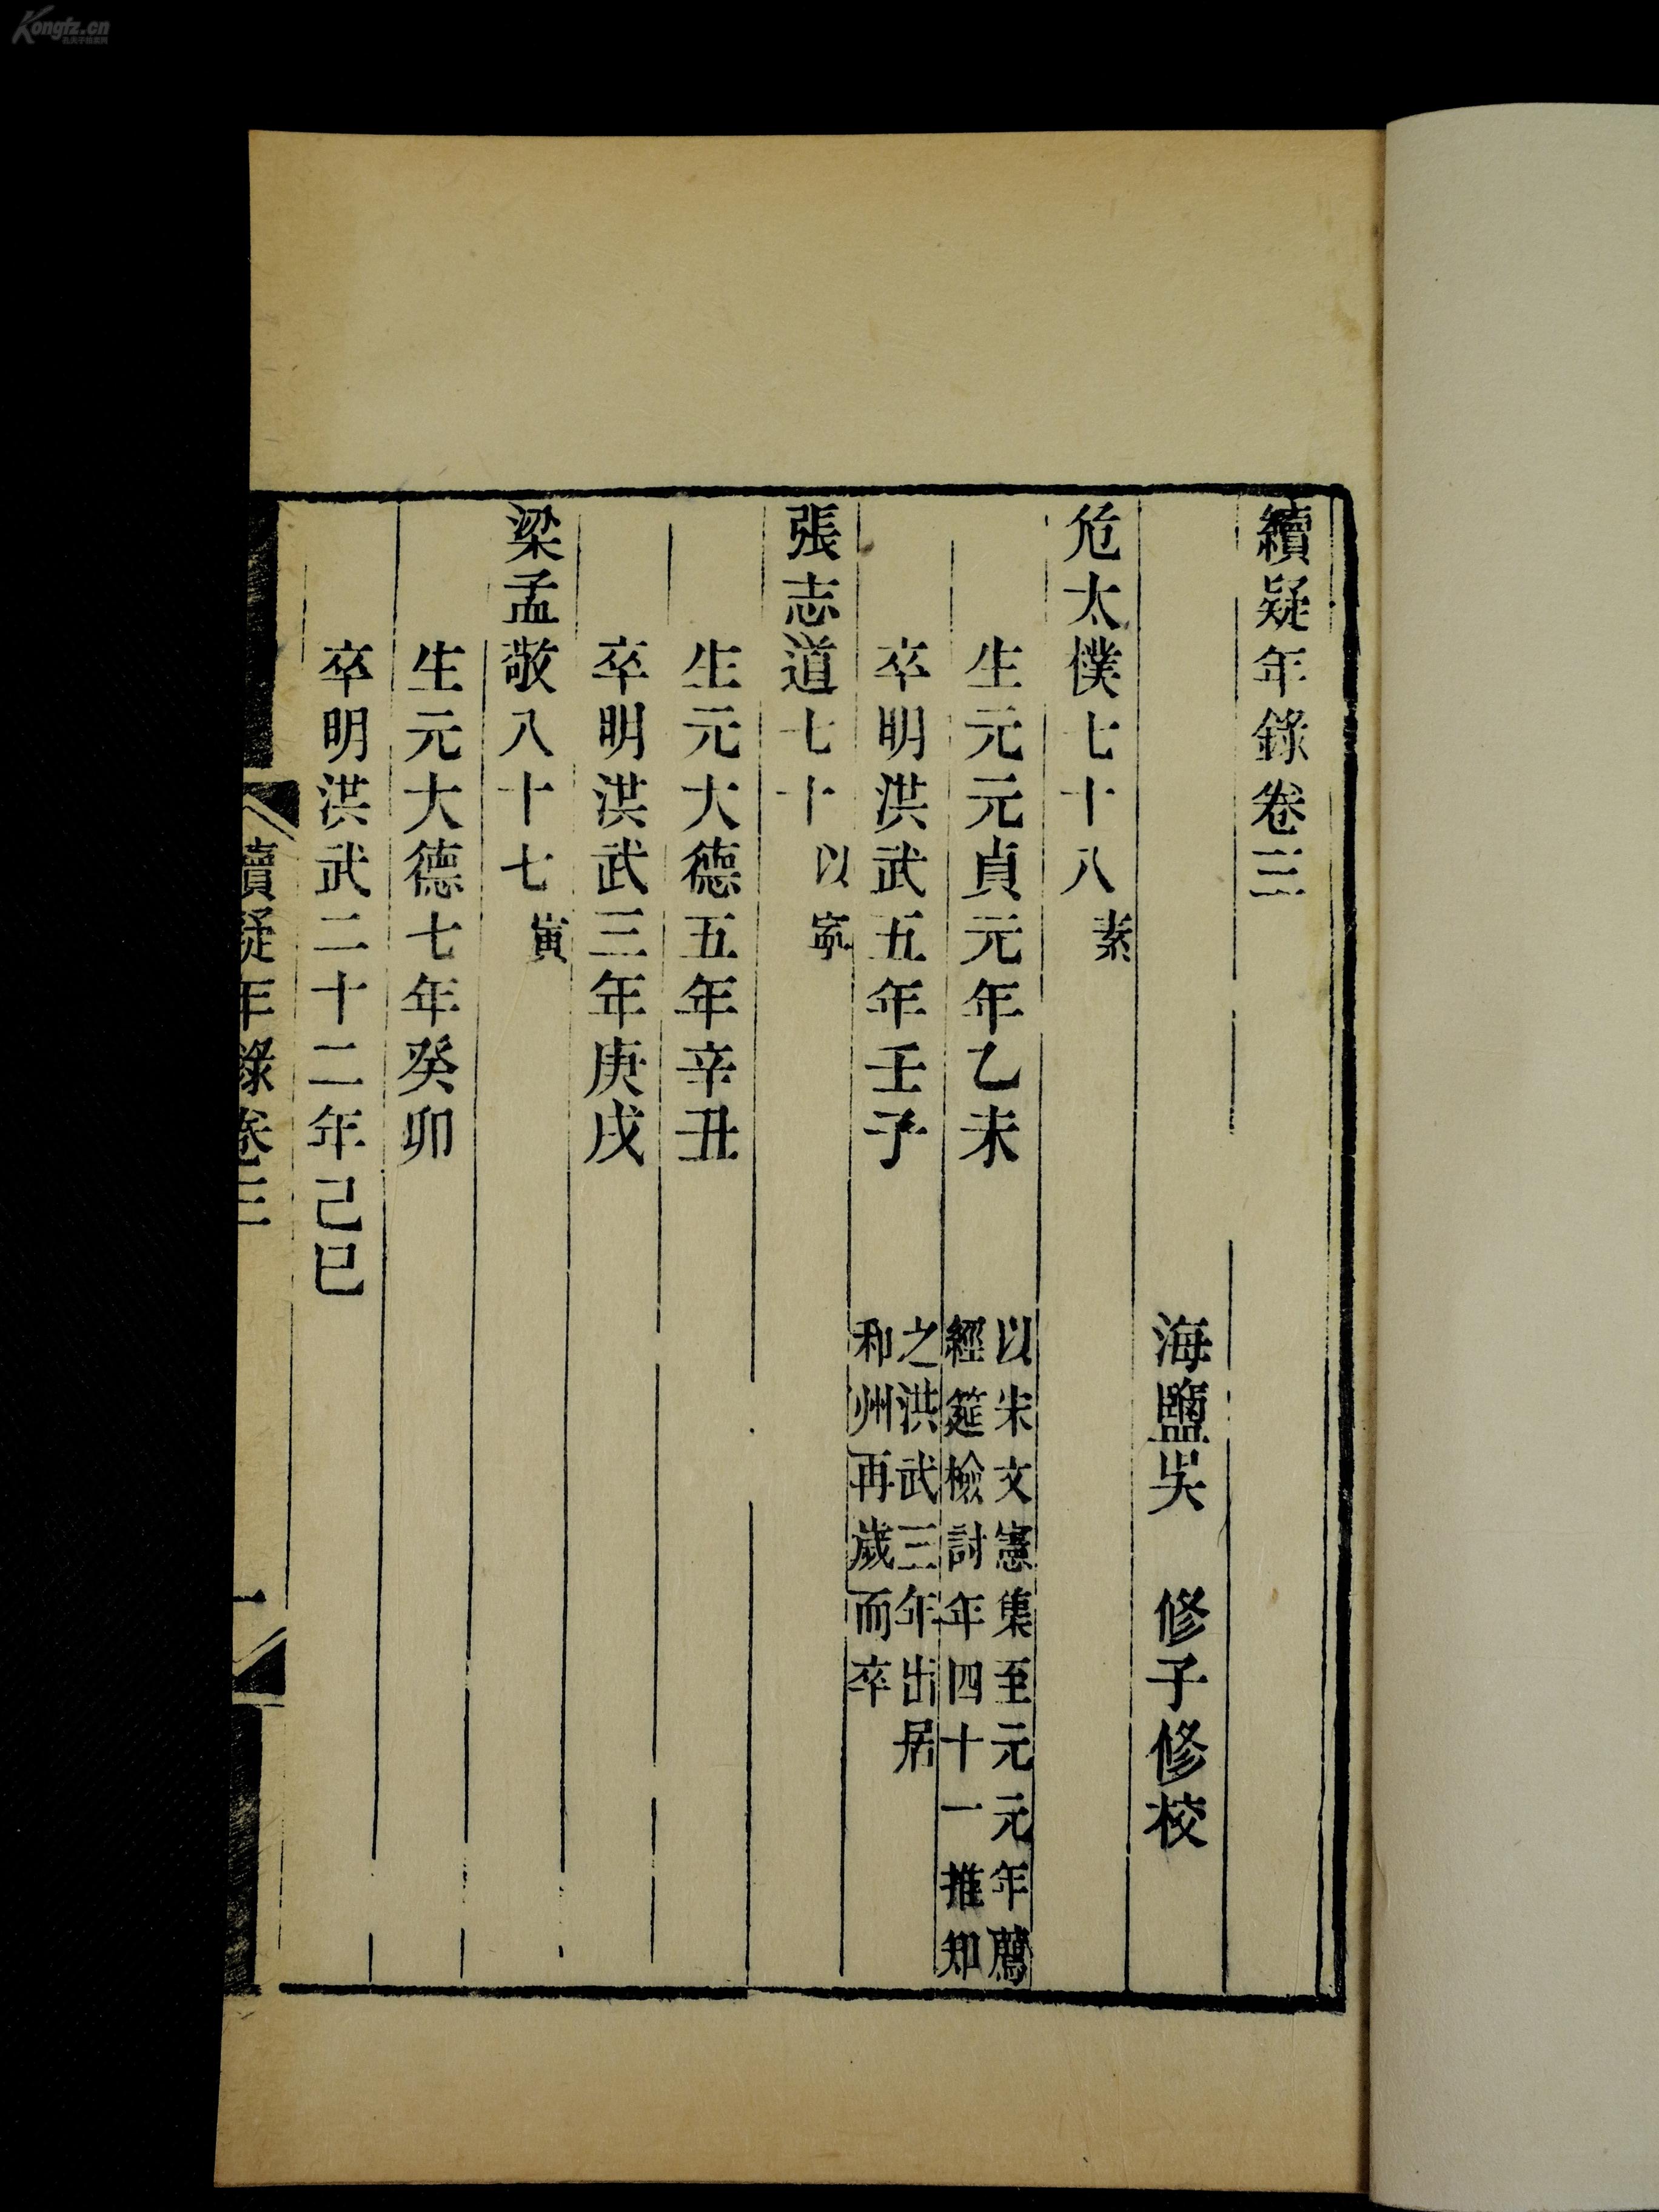 續疑年錄卷三
海鹽吳　修子修校
危太僕七十八素
生元元貞元年乙未
以宋文憲集至元元年薦
經筵檢討年四十一推知
卒明洪武五年壬子
之洪武三年出居
和州再歲而卒
張志道七十以寧
生元大德五年辛丑
卒明洪武三年庚戌
梁孟敬八十七寅
生元大德七年癸卯
卒明洪武二十二年己巳
續疑年錄卷三
一
Kongfz.cn